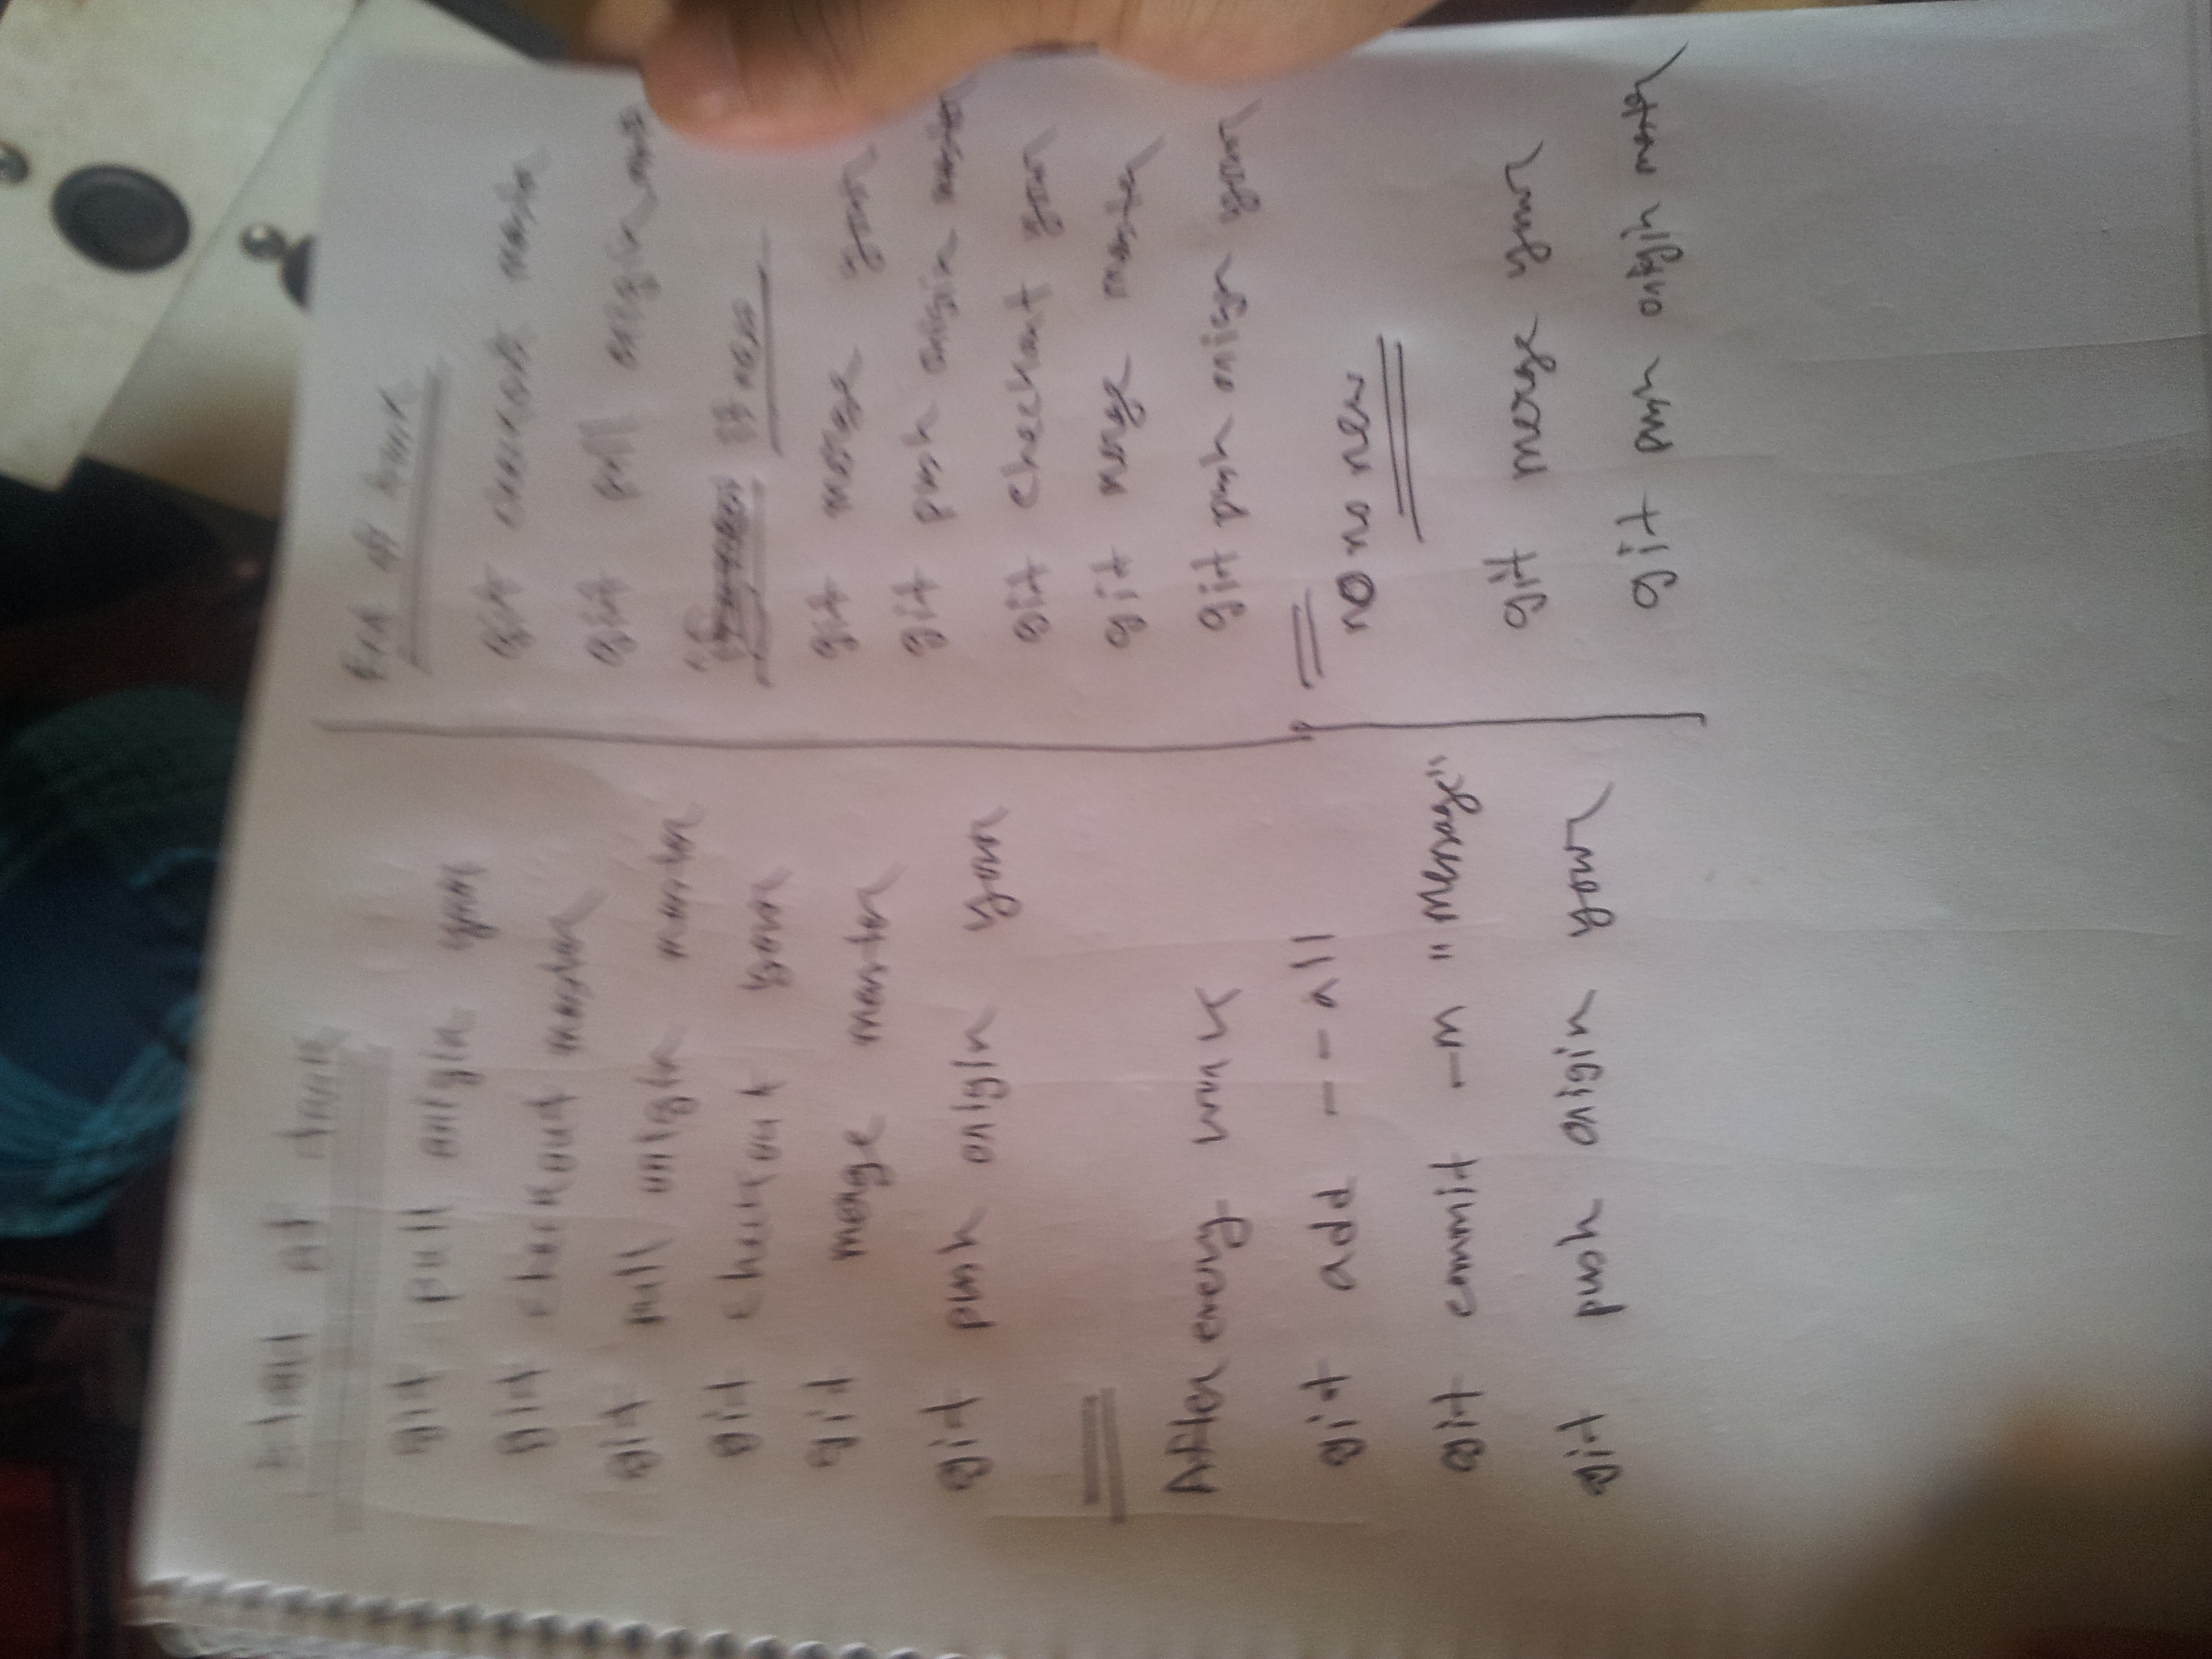 start of
git pull origin your
git checkout master
git pull origin master
git checkout your
git merge master
git push origin your
After every work
git add --all
git commit -m "Message"
git push origin your
End of work
git checkout master
git pull origin
if new
git merge your
git push origin master
git checkout your
git merge master
git push origin your
no no new
git merge your
git push origin master